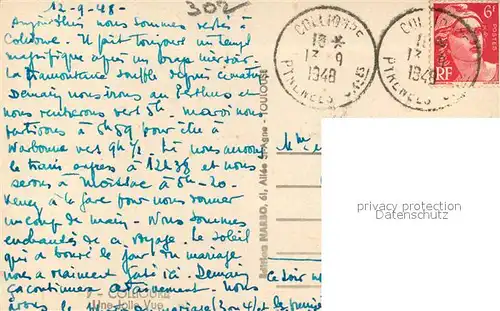 12-9-48-
302
Aujourd'hui nous sommes restés à
Collioure. Il fait toujours un temps
magnifique après un orage
La tramontane souffle depuis ce matin
Demain nous irons au Perthus et
nous rentrerons vers 5h. mardi nous
partirons à 6h59 pour être à
Narbonne vers 9h ½. Là nous aurons
le train express à 12h38 et nous
serons à Moissac à 5h-20-
Venez à la gare pour nous donner
un coup de main. Nous sommes
enchantés de ce voyage. Le soleil
qui a boudé le jour du mariage
nous a vraiment gâtés ici. Demain
ça continuera certainement. Nous
avons
COLLIOURE
18 *
13 9
1948
PYRENEES ORLES
COLLIOURE
13 9
1948
PYRENEES
6F
POSTES
RF
Edition NARBO, 61, Allée - TOULOUSE
Mme
privacy protection
Datenschutz
ce soir
COLLIOURE
Une Jolie Vue